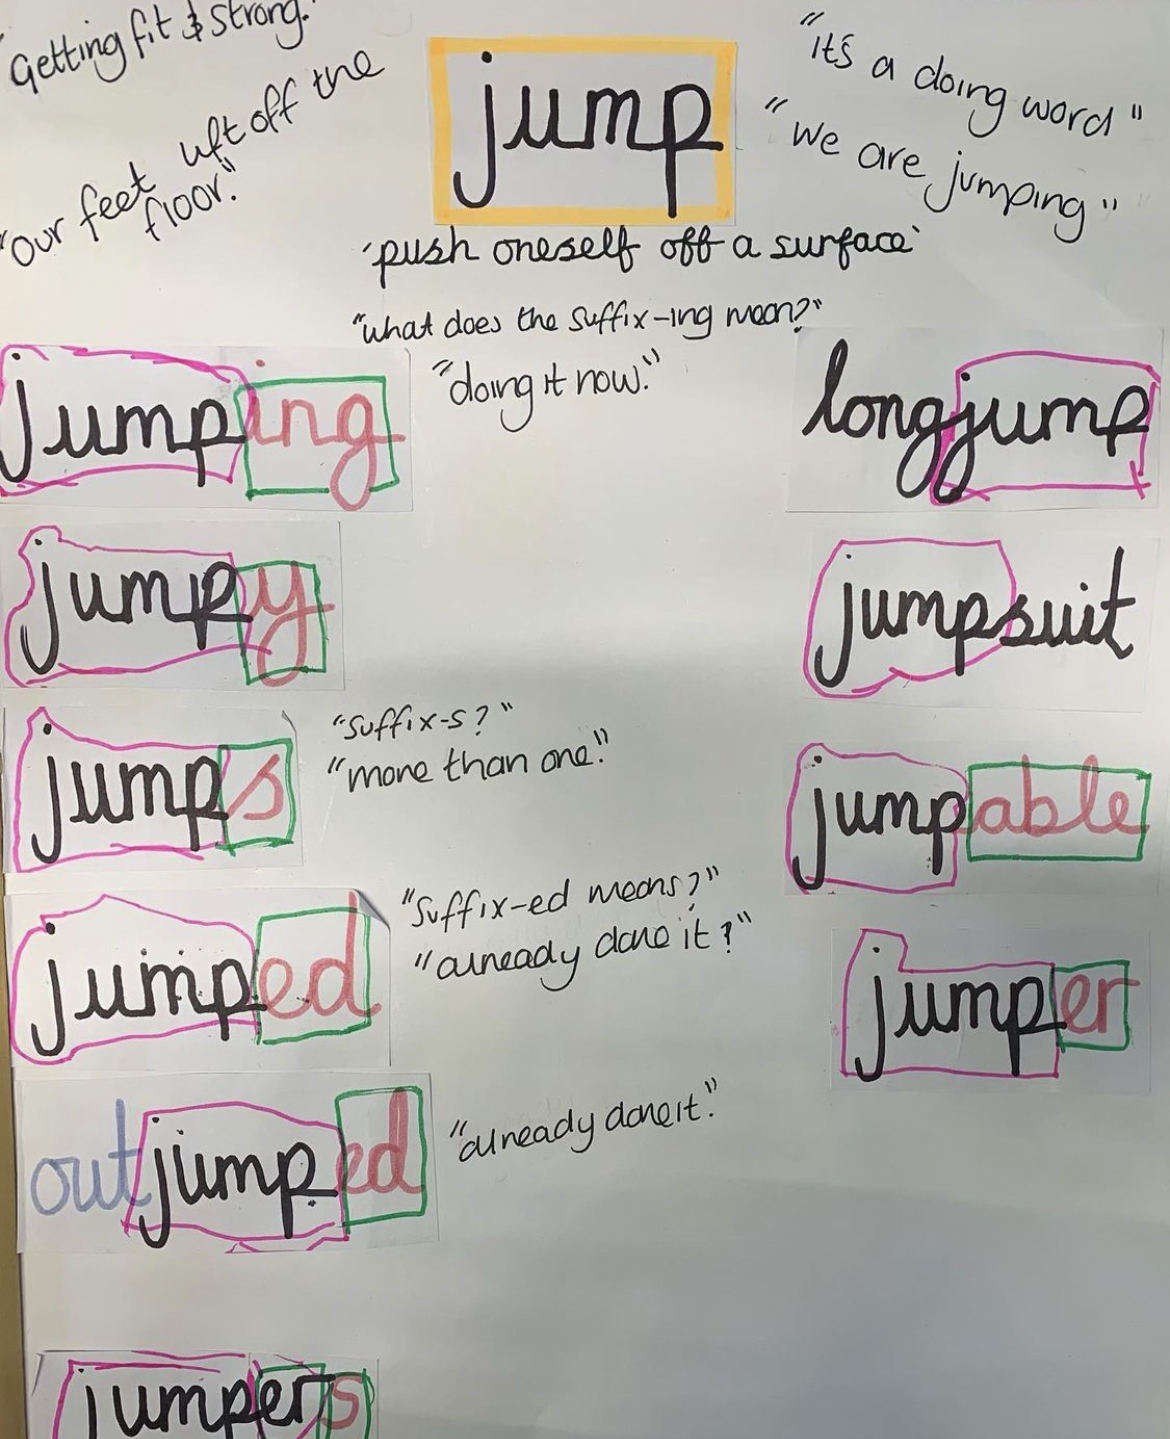 "Getting fit & strong."
"Our feet lift off the
floor."
jump
"it's a doing word"
"we are jumping"
'push oneself off a surface'
"what does the suffix-ing mean?"
"doing it now."
jumping
jumpy
jumps
"suffix-s?"
"more than one."
jumped
"suffix-ed means?"
"already done it?"
outjumped
"already done it."
jumpers
longjump
jumpsuit
jumpable
jumper